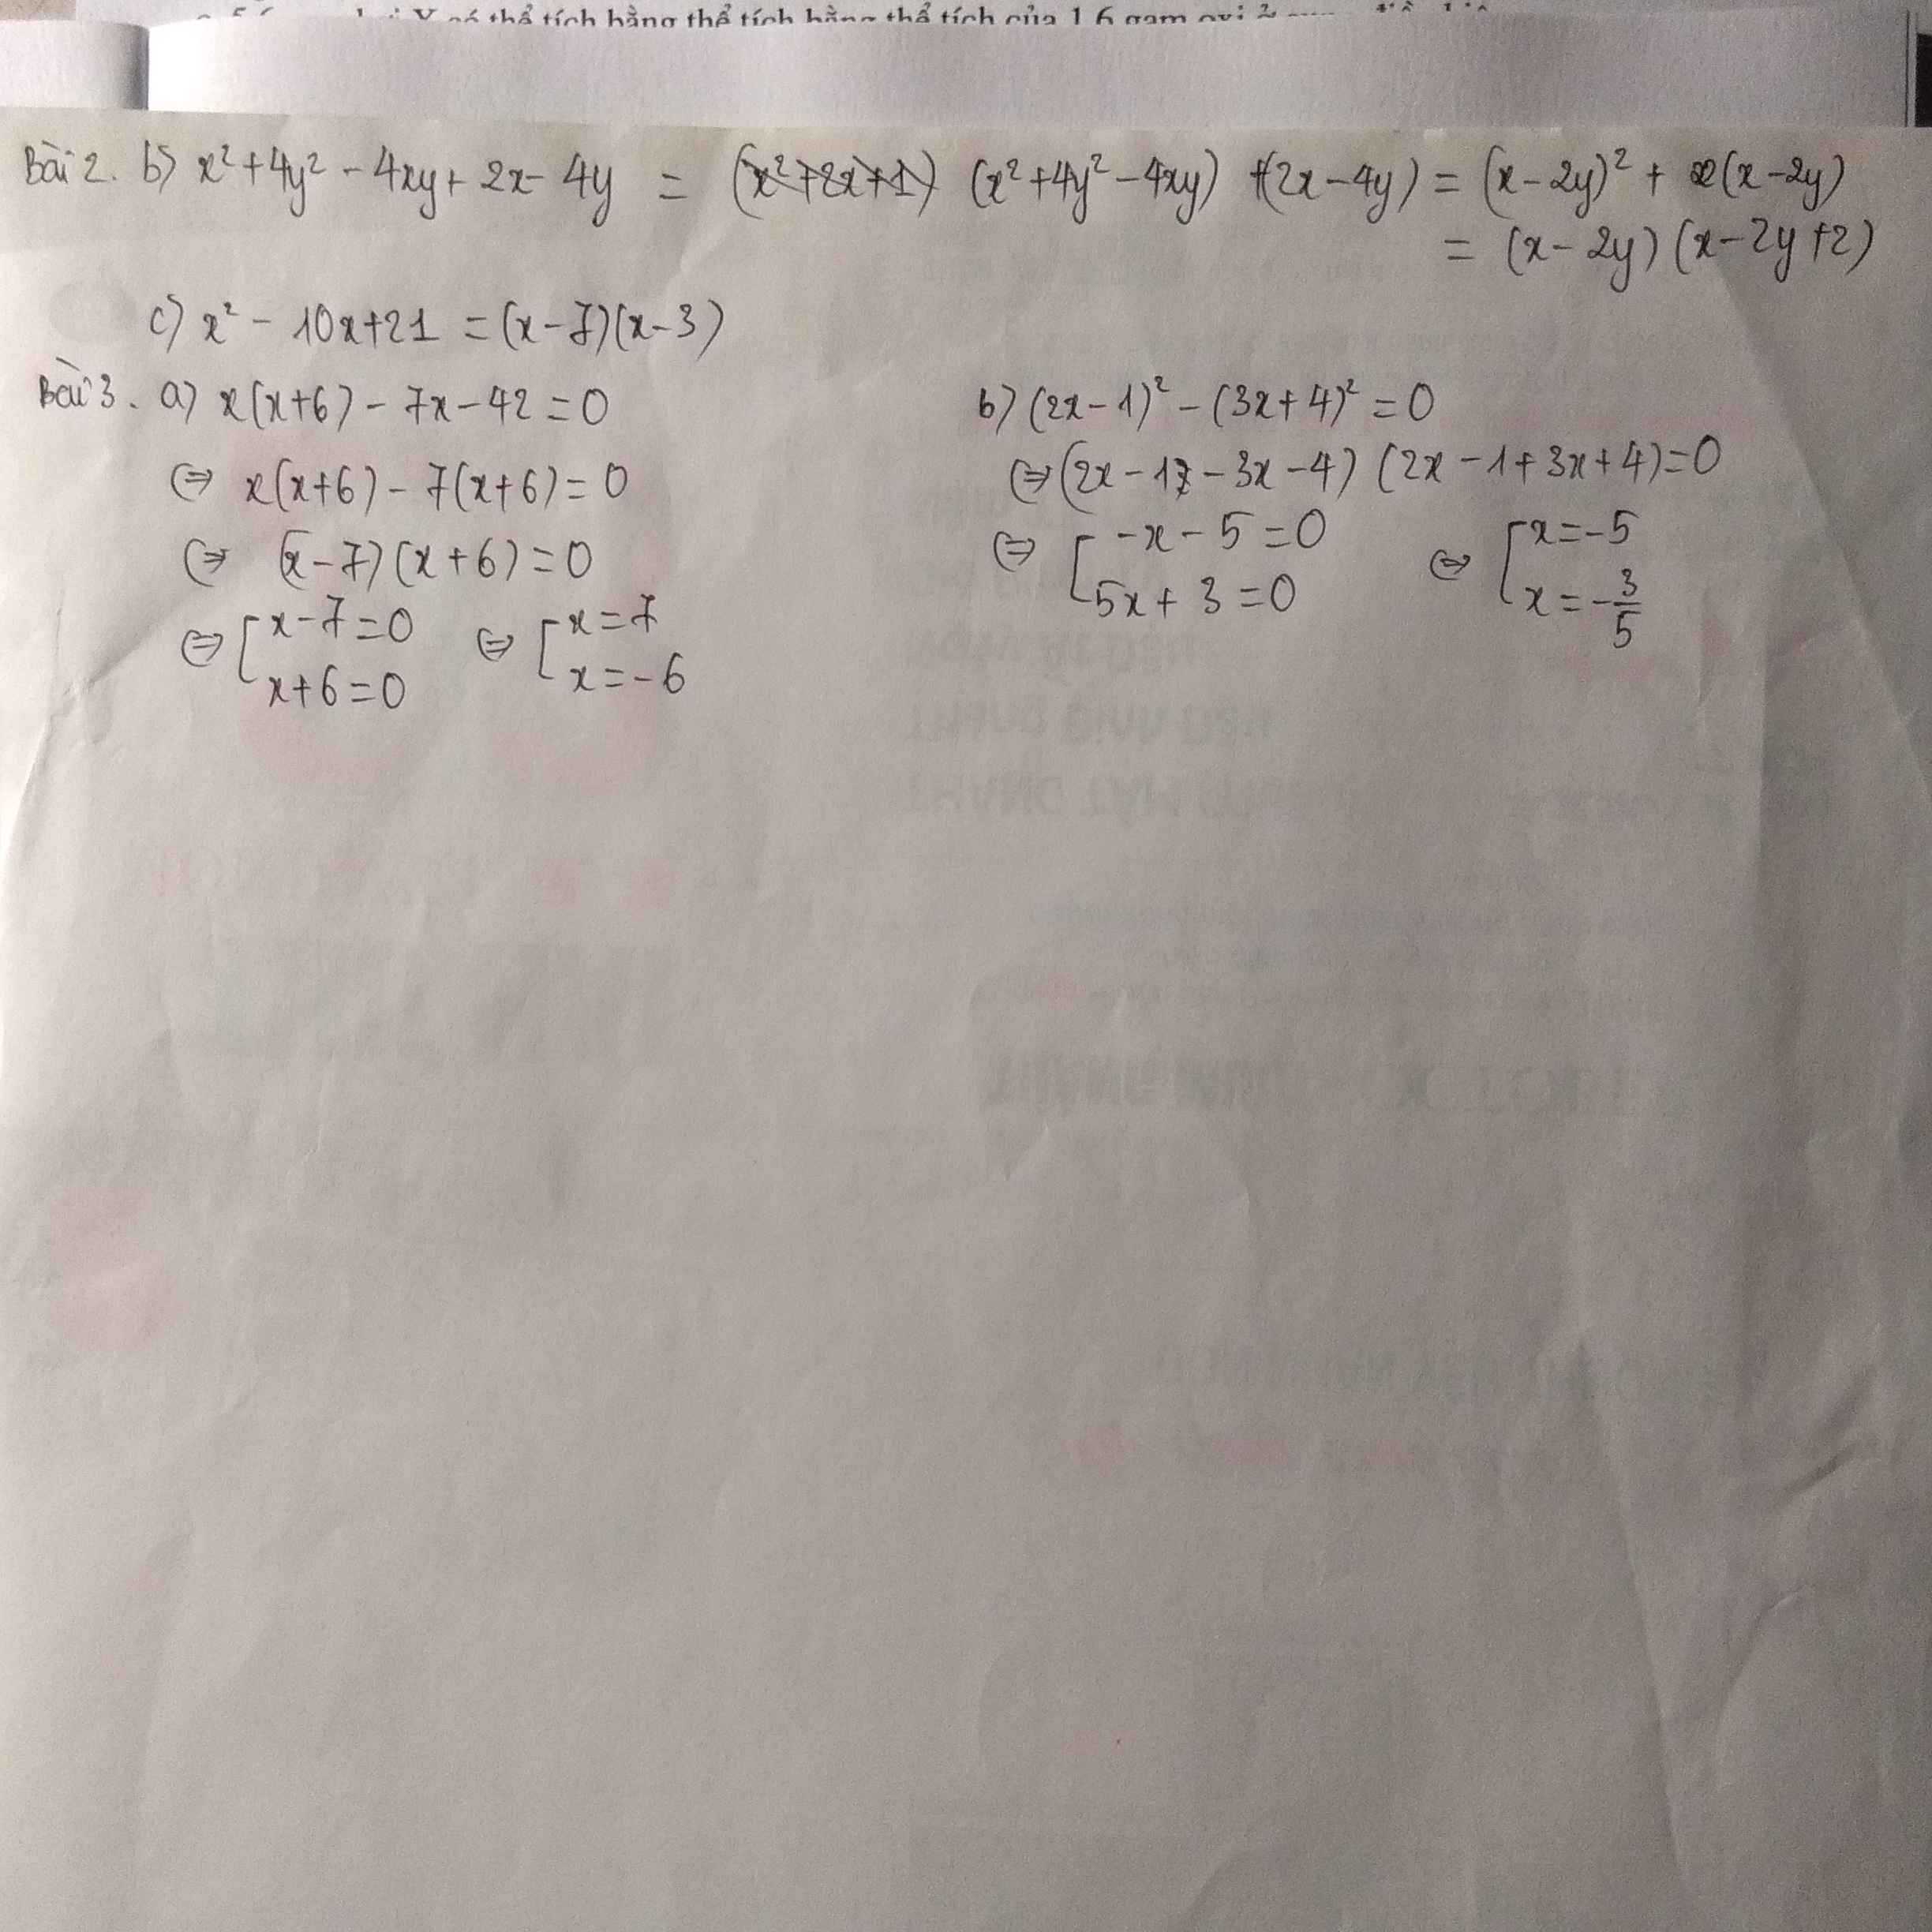 có thể tích bằng thể tích bằng thể tích của 1,6 gam oxi ở
Bài 2. b) x² + 4y² - 4xy + 2x - 4y = (x² + 2x + 1) (x² + 4y² - 4xy) + (2x - 4y) = (x - 2y)² + 2(x - 2y)
= (x - 2y) (x - 2y + 2)
c) x² - 10x + 21 = (x - 7)(x - 3)
Bài 3. a) x(x+6) - 7x - 42 = 0
⇔ x(x+6) - 7(x+6) = 0
⇔ (x - 7)(x + 6) = 0
⇔ [ x - 7 = 0 ⇔ [ x = 7
x + 6 = 0 x = -6
b) (2x - 1)² - (3x + 4)² = 0
⇔ (2x - 1 - 3x - 4) (2x - 1 + 3x + 4) = 0
⇔ [ -x - 5 = 0 ⇔ [ x = -5
5x + 3 = 0 x = -3/5